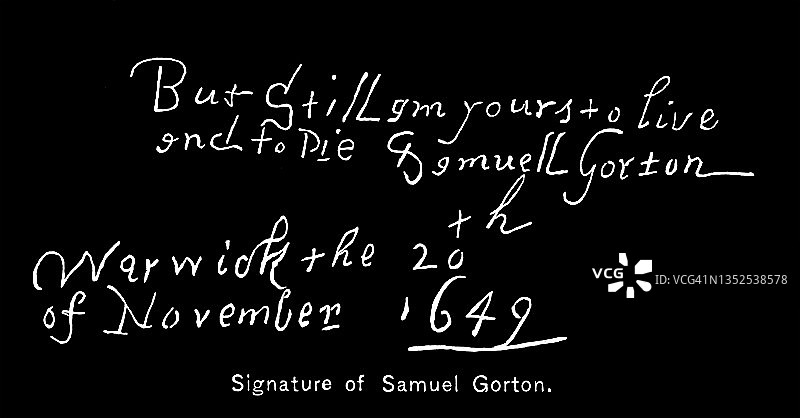 But Still am yours to live
and to Die Samuell Gorton
Warwick the 20th
of November 1649
VCG ID: VCG41N1352538578
Signature of Samuel Gorton.